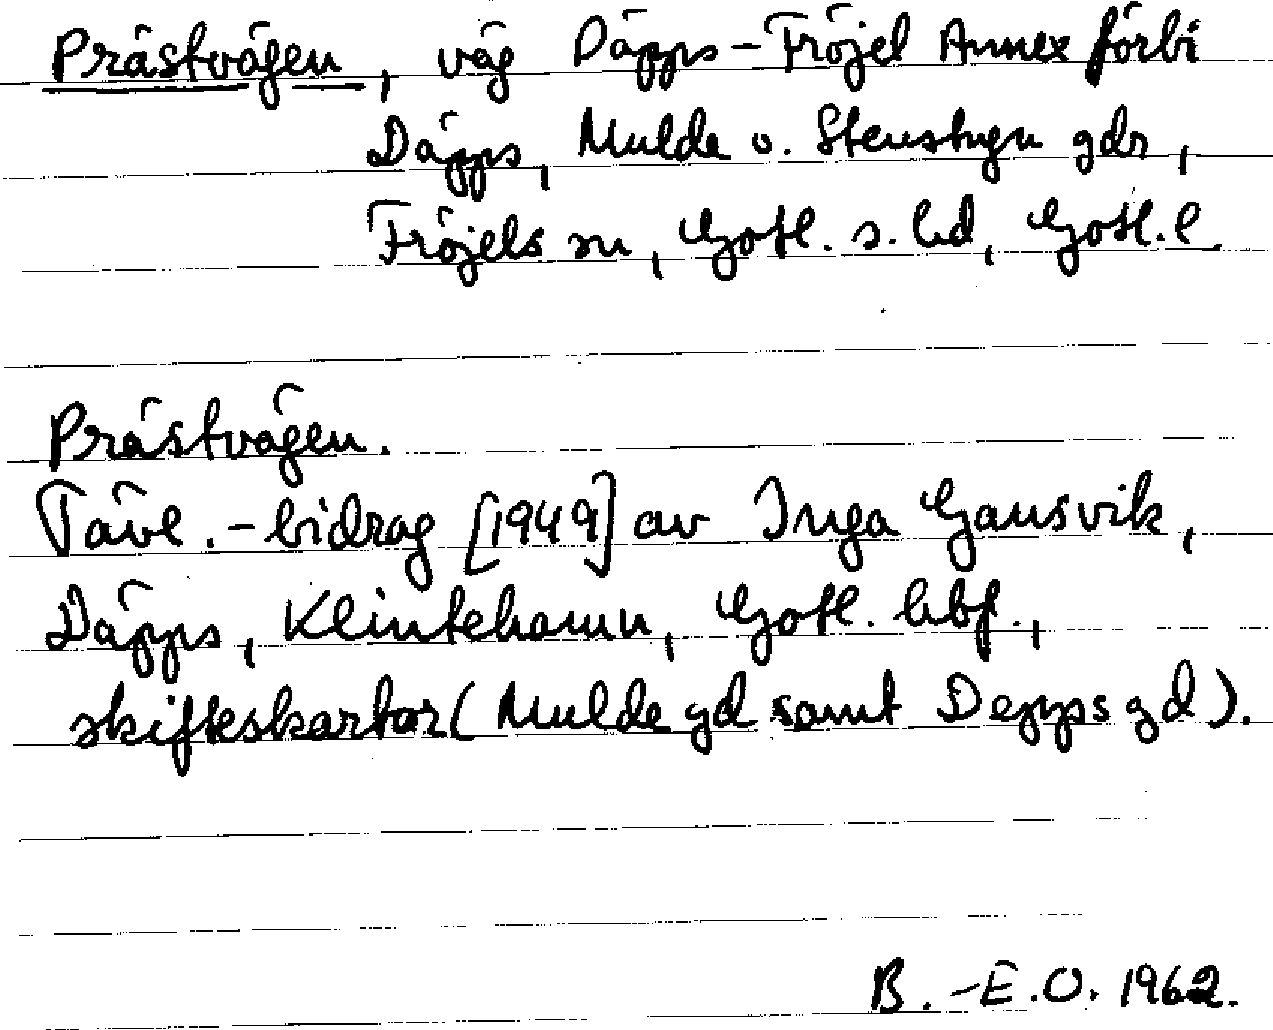 Prästvägen, väg Däpps-Fröjel Annex förbi
Däpps, Mulde o. Stenstugu gdr,
Fröjels sn, Gotl. s. hd, Gotl. l.
Prästvägen.
Tävl.-bidrag [1949] av Inga Gansvik,
Däpps, Klintehamn, Gotl. hbf.,
skifteskartor (Mulde gd samt Depps gd).
B.-E.O. 1962.